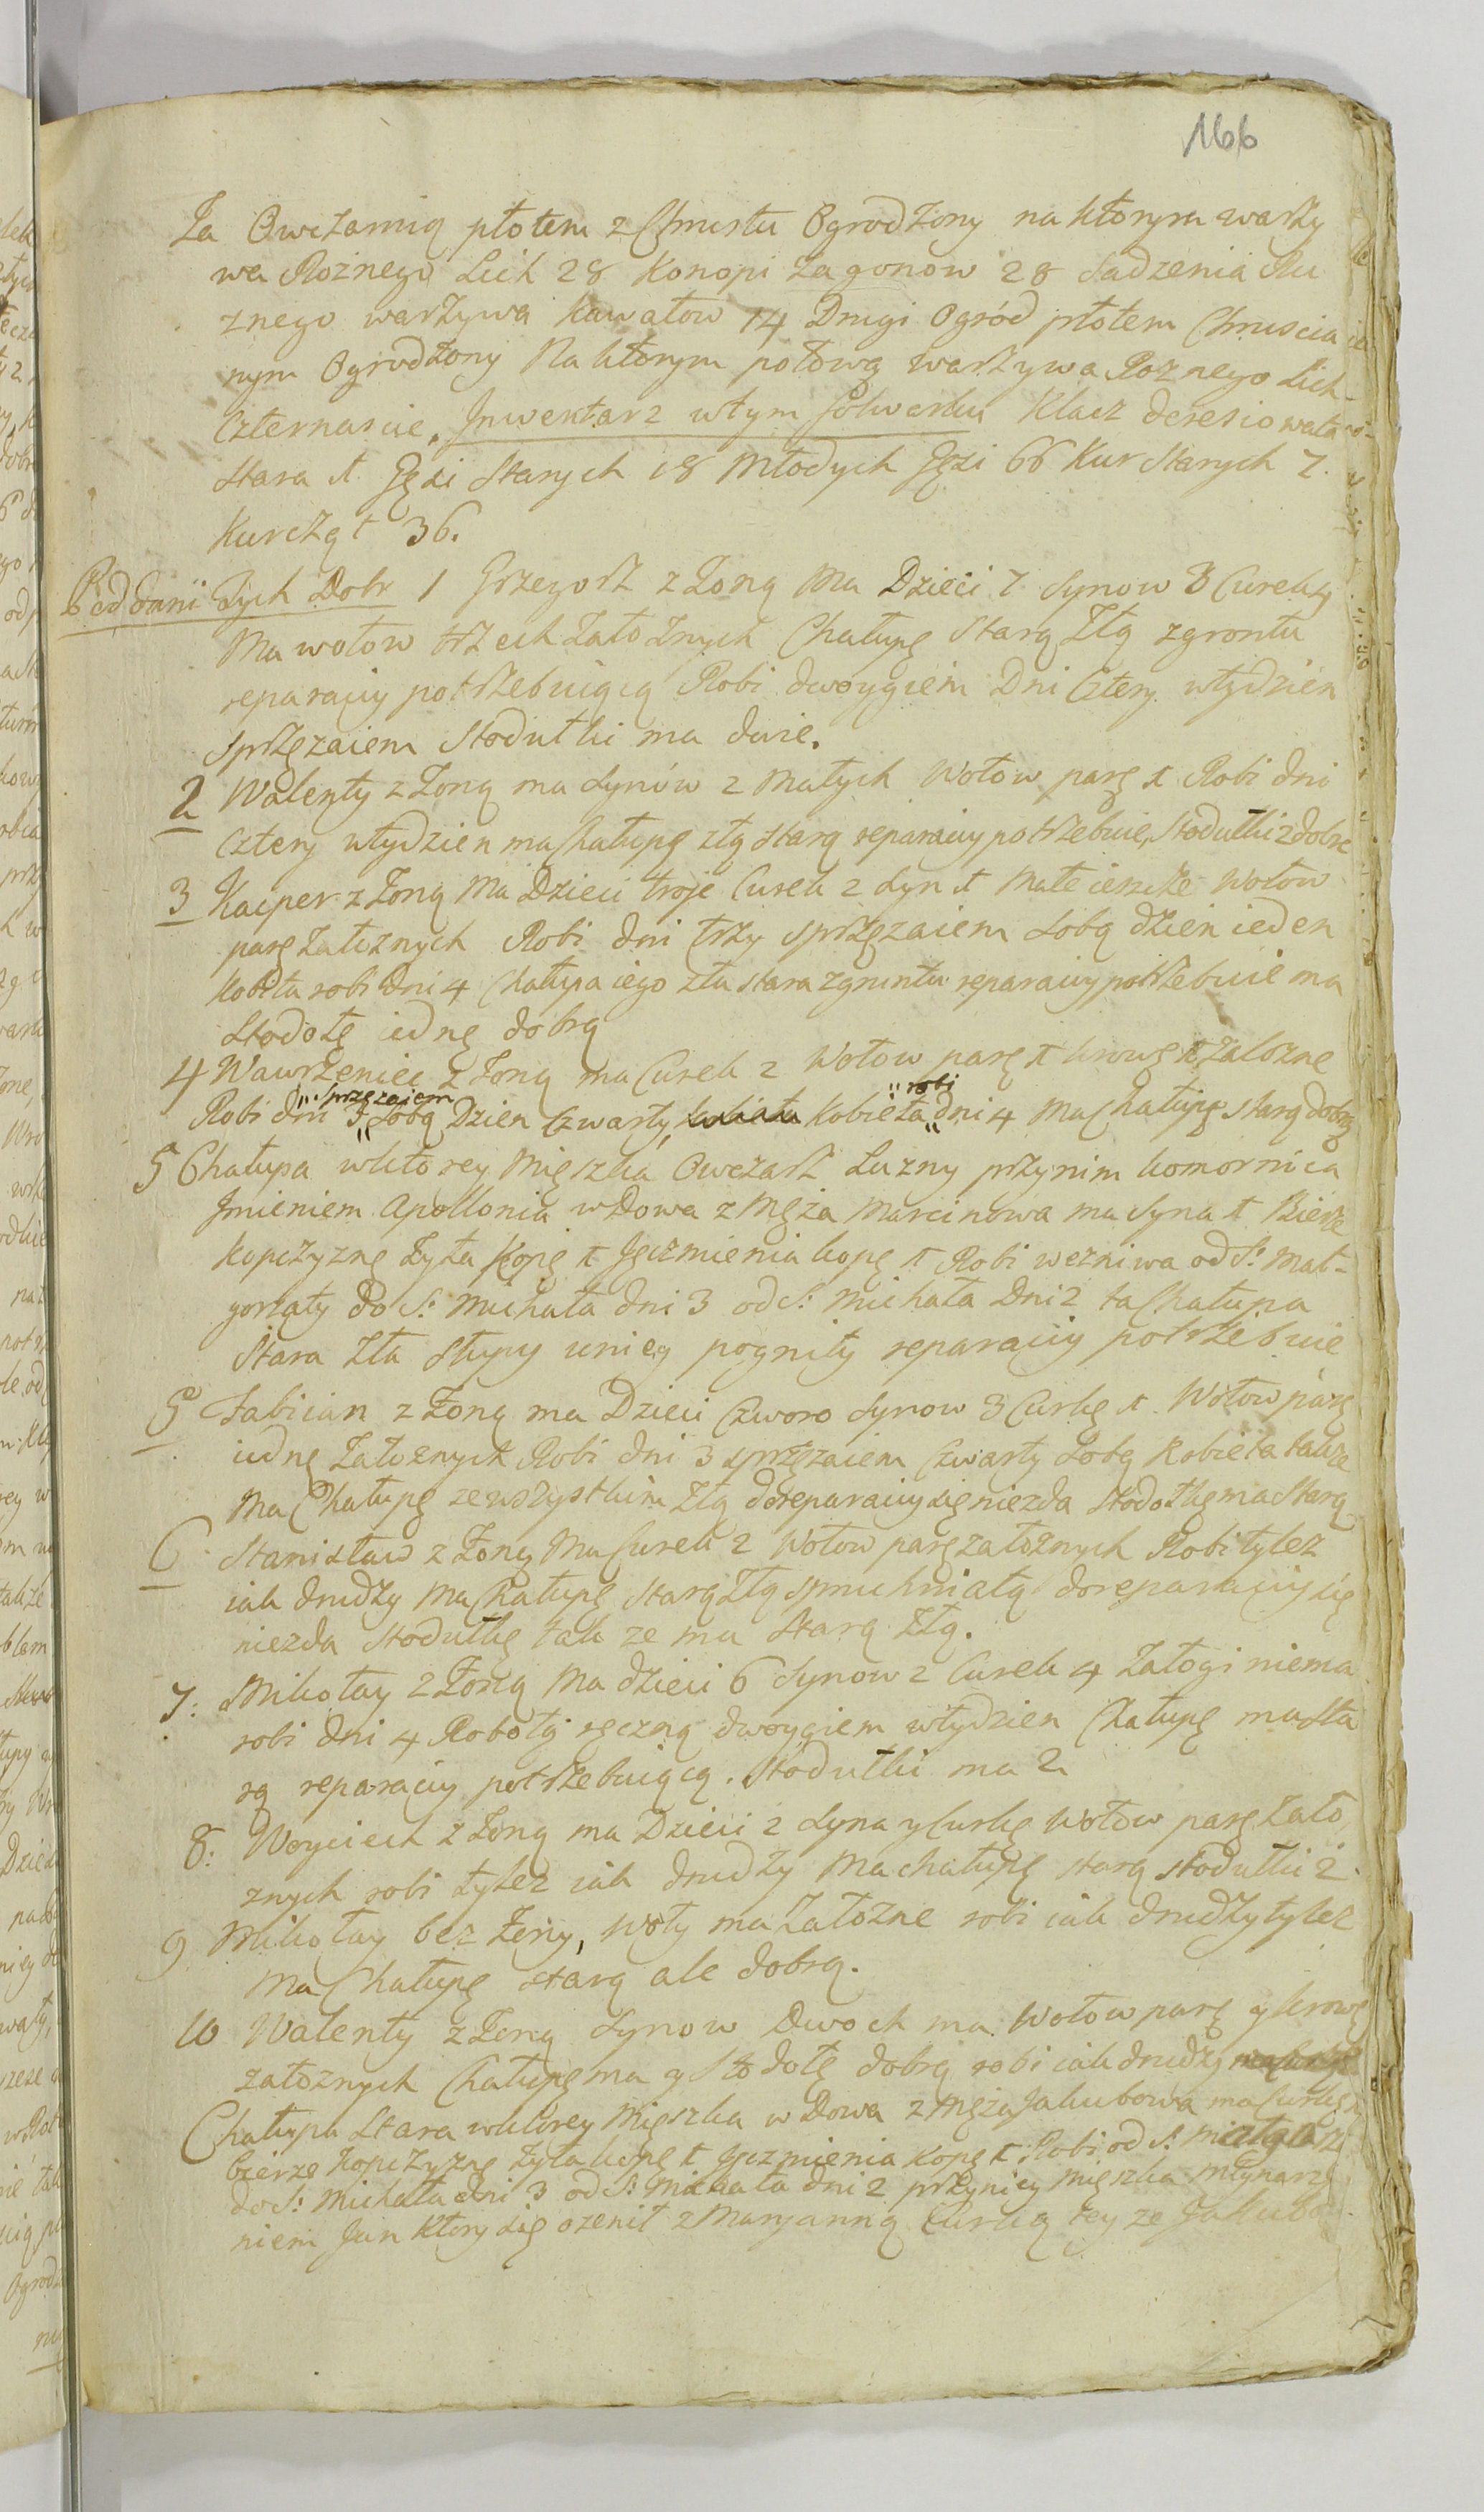 166
Za Owczarnią płotem z Chrustu Ogrodzony na ktorym warzy
wa Rożnego Lich 28 Konopi zagonow 28 Sadzenia Ru
znego warzywa kawałow 14 Drugi Ogród płotem Chruscia
nym Ogrodzony Na ktorym połową warzywa Roznego Lich
Czternascie, Jnwentarz wtym folwarku Klacz deresiowata
stara 1. Gęsi starych 18 Młodych Gęsi 66 Kur starych 7.
Kurcząt 36.
Poddani Tych Dobr 1 Grzegorz z Zoną Ma Dzieci 7 Synow 3 Curek 4
Ma wołow trzech założnych Chałupę starą złą zgrontu
reparacyi potrzebuiącą Robi dwoygiem Dni Cztery wtydzien
sprzęzaiem Stodułki ma dwie.
2 Walenty z Zoną ma synów 2 Małych Wołow parę 1 Robi dni
Cztery wtydzien ma Chałupę złą starą reparacyi potrzebuie, Stodułki 2 dobre
3 Kacper z Zoną Ma Dzieci troje Curek 2 syn 1 Małe ieszcze Wołow
parę Załoznych Robi dni trzy sprzęzaiem sobą dzien ieden
Kobita robi dni 4 Chałupa iego zła stara zgruntu reparacyi potrzebuie ma
Stodołę iednę dobrą
4 Wawrzeniec z Zoną ma Curek 2 Wołow parę 1 krowę 1 Załozne
"Sprzęzaiem "robi
Robi dni 3 " Sobą Dzien Czwarty, kobieta Kobieta " dni 4 Ma Chałupę starą dobrą
5 Chałupa wktorey Mięszka Owczarz Luzny przynim komornica
Jmieniem Apollonia wdowa z Męża Marcinowa ma Syna 1 Bierze
kopczyznę Zyta Kopę 1 Jęczmienia kopę 1 Robi wezniwa od S: Mał-
gorzaty do S: Michała dni 3 od S: Michała Dni 2 ta Chałupa
Stara Zła słupy uniey pogniły reparacyi potrzebuie
5 Fabiian z Zoną ma Dzieci Czworo Synow 3 Curkę 1. Wołow parę
iednę Załoznych Robi dni 3 sprzęzaiem Czwarty Sobą Kobieta takze
Ma Chałupę zewszystkim Złą doreparacyi się niezda Stodołkę ma Starą
6 Stanisław z Zoną Ma Curek 2 Wołow parę załoznych Robi tylez
iak drudzy Ma Chałupę starą Złą spruchniałą doreparacyi się
niezda Stodułkę tak ze ma Starą Złą.
7: Mikołay z Zoną Ma dzieci 6 Synow 2 Curek 4 Załogi niema
robi dni 4 Robotą ręczną dwoygiem wtydzien Chałupę ma sta
rą reparacyi potrzebuiącą. Stodułki ma 2
8: Woyciech z Zoną ma Dzieci 2 Syna y Curkę Wołow parę Zało
znych robi tylez iak drudzy Ma chałupę starą stodułki 2.
9 Mikołay bez Zony, woły ma Załozne robi iak drudzy tylez
Ma Chałupę starą ale dobrą.
10 Walenty z Zoną Synow Dwoch ma. Wołow parę y krowę
załoznych Chałupę ma y Stodołę dobrą robi iak drudzy
Chałupa Stara wktorey Mięszka wdowa z Męża Jakubowa ma Curkę
bierze Kopczyznę Zyta kopę 1 Jęczmienia kopę 1 Robi od S: Małgorz
do S: Michała dni 3 od S: Michała dni 2 przyniey Mięszka Młynarz
niem Jan Ktory się ozenił z Maryanną Curką tey ze Jakubo